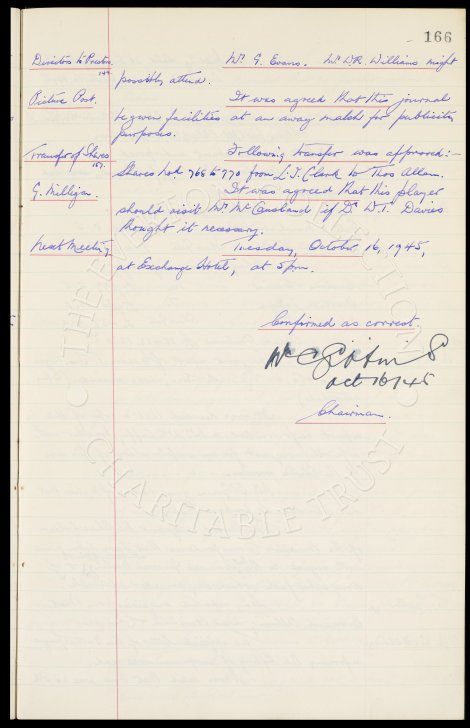 166
Directors to Preston. Mr. G. Evans. Mr. D.R. Williams might
possibly attend.
Picture Post. It was agreed that this journal
be given facilities at an away match for publicity
purposes.
Transfer of Shares Following transfer was approved:-
157.
Shares Nos 766 to 770 from L.J. Clark to Thos Allan.
G. Milligan. It was agreed that this player
should visit Mr. McCausland if Dr. W.T. Davies
thought it necessary.
Next Meeting Tuesday, October 16, 1945,
at Exchange Hotel, at 5 pm.
Confirmed as correct.
Oct 16/45
Chairman.
CHARITABLE TRUST